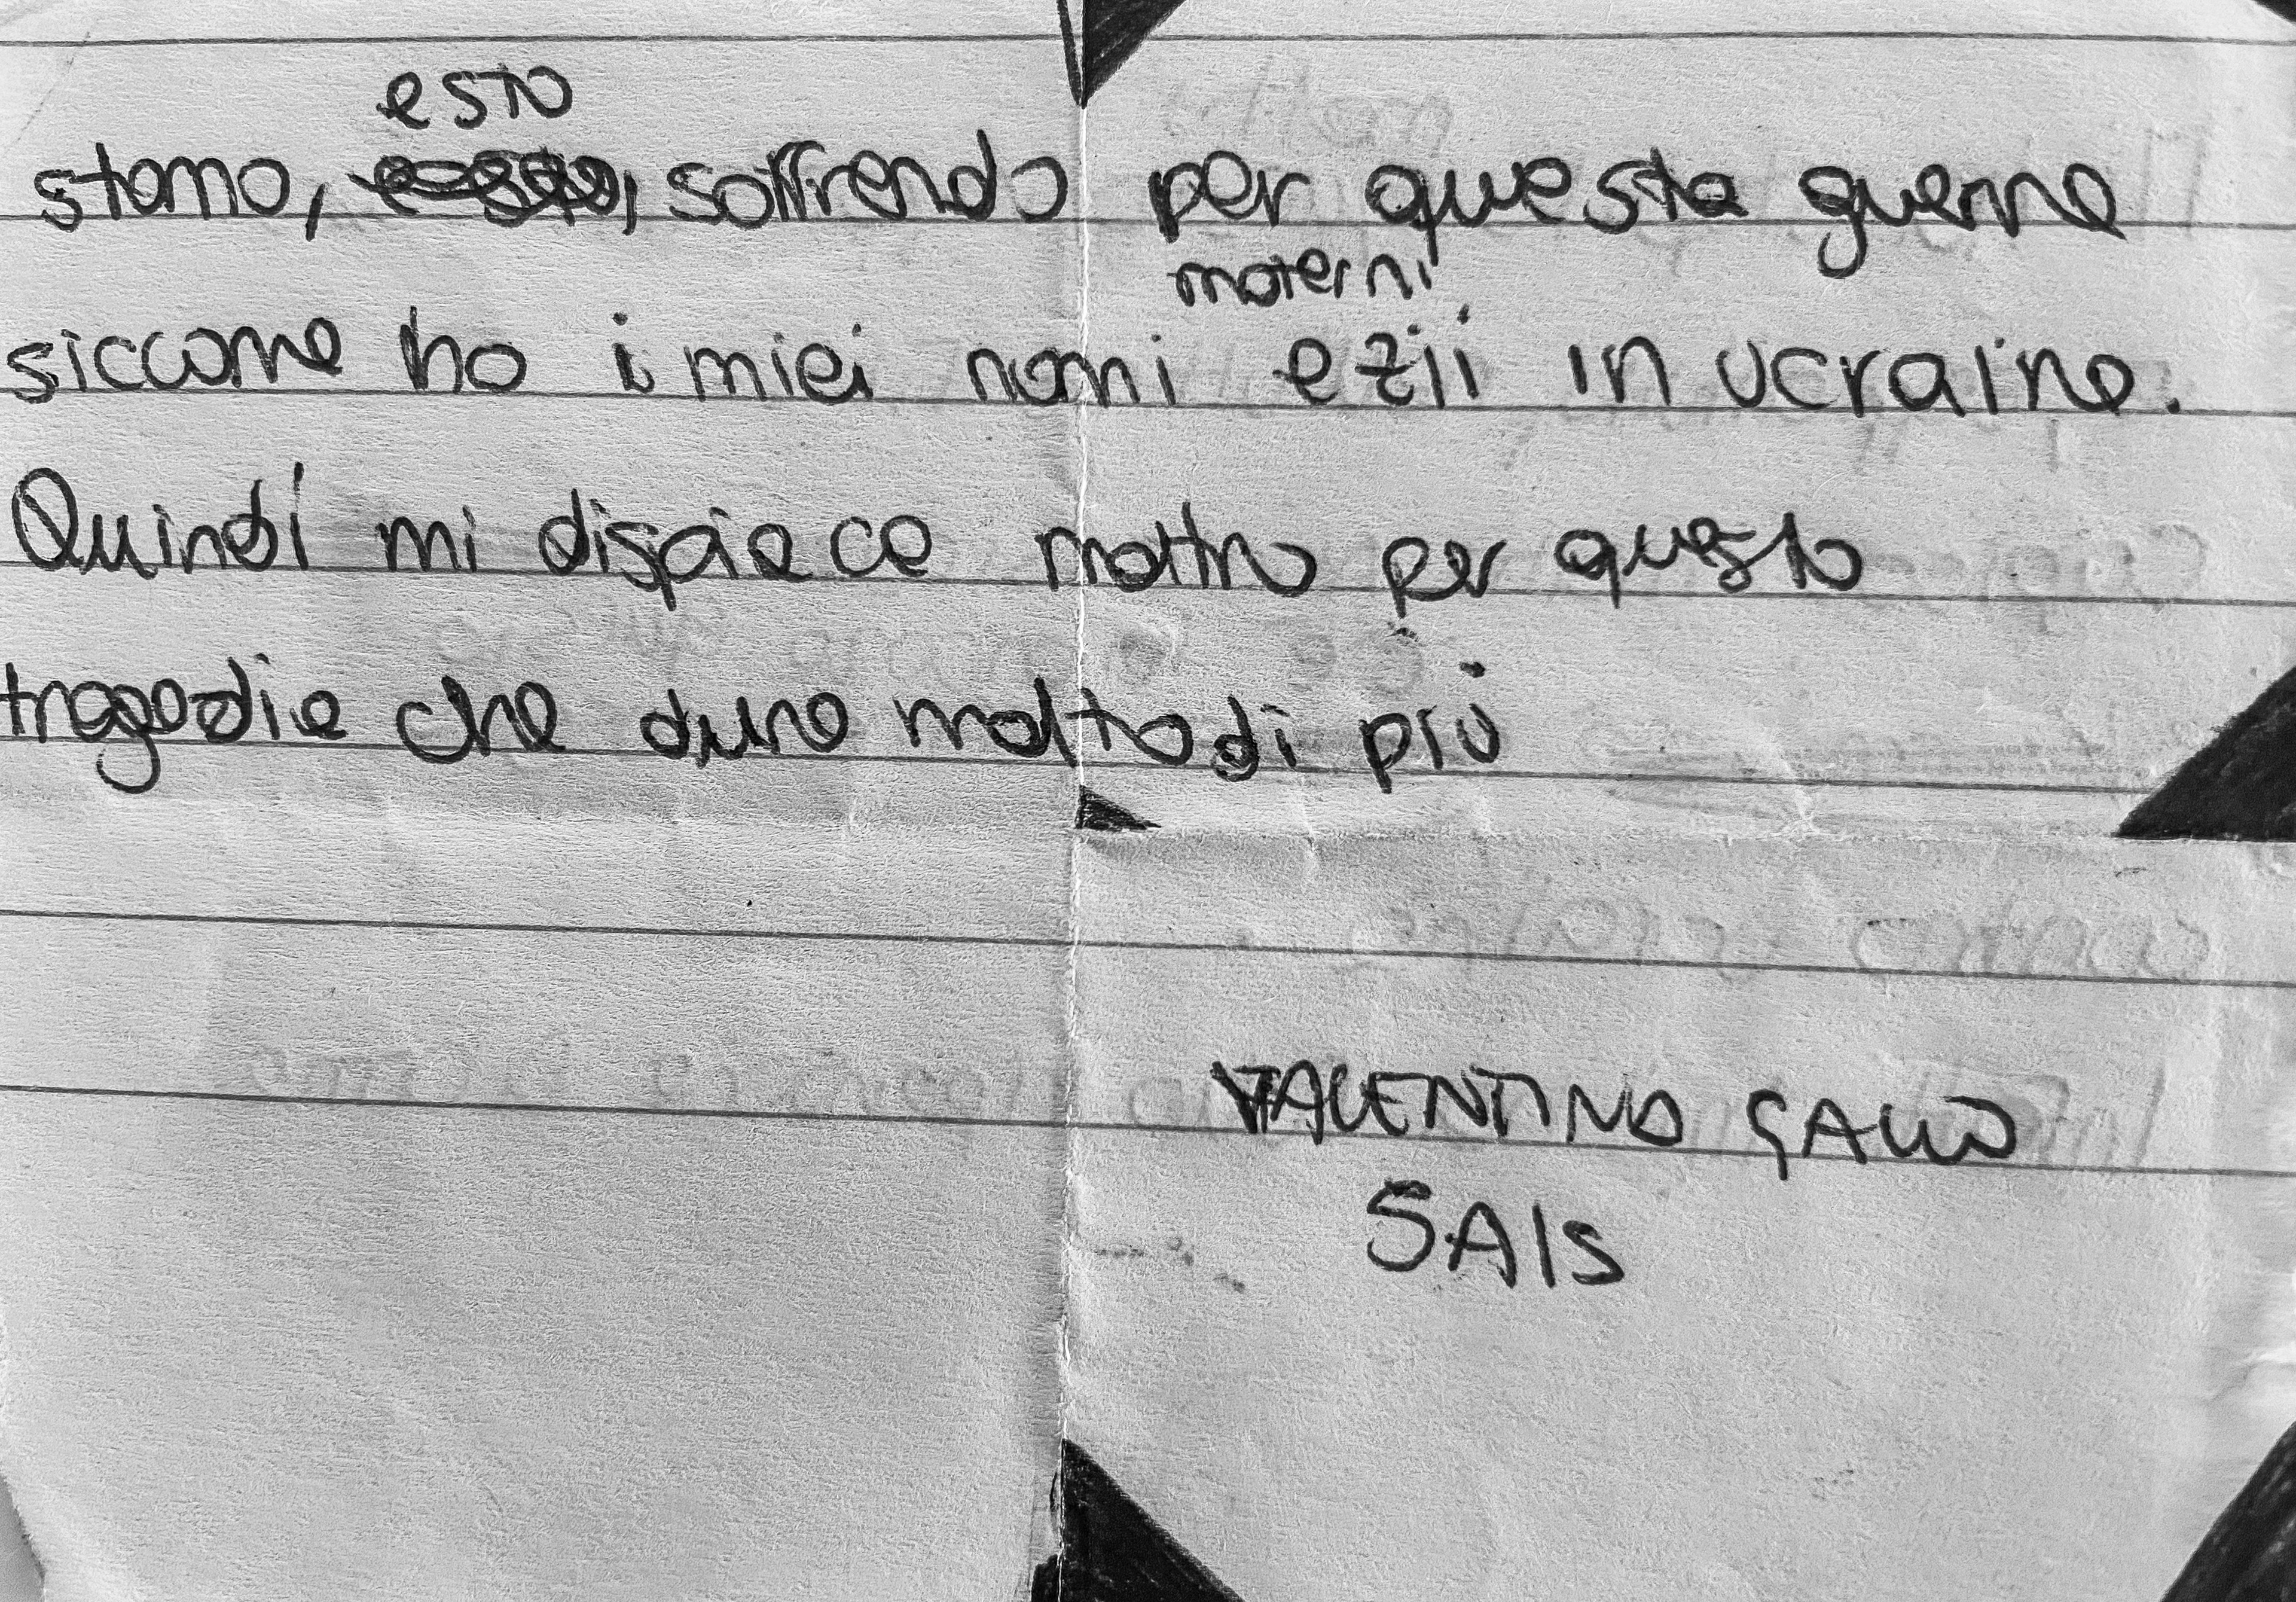 e sto
stanno, soffrendo per questa guerra
materni
siccome ho i miei nonni e zii in ucraina.
Quindi mi dispiace molto per questa
tragedia che dura molto di più
VALENTINO GALLO
5AIS